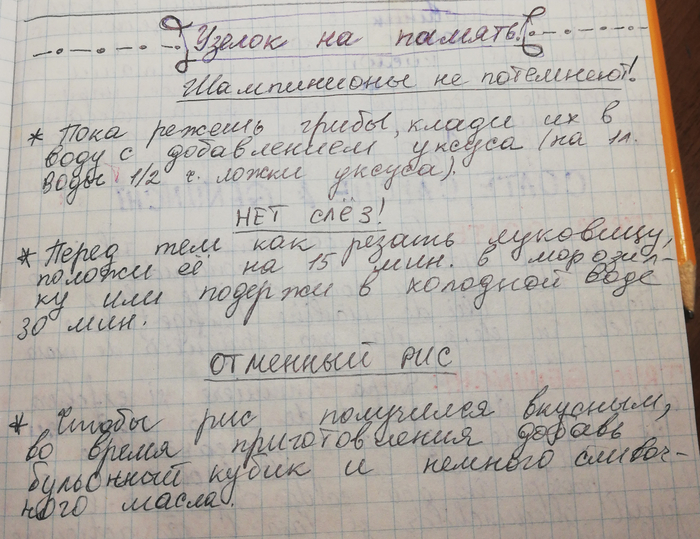 Узелок на память!
Шампинионы не потемнеют!
* Пока режешь грибы, клади их в
воду с добавлением уксуса (на 1л.
воды 1/2 ч. ложки уксуса).
НЕТ СЛЁЗ!
* Перед тем как резать луковицу,
положи её на 15 мин. в морозил-
ку или подержи в холодной воде
30 мин.
ОТМЕННЫЙ РИС
* Чтобы рис получился вкусным,
во время приготовления добавь
бульонный кубик и немного сливоч-
ного масла.